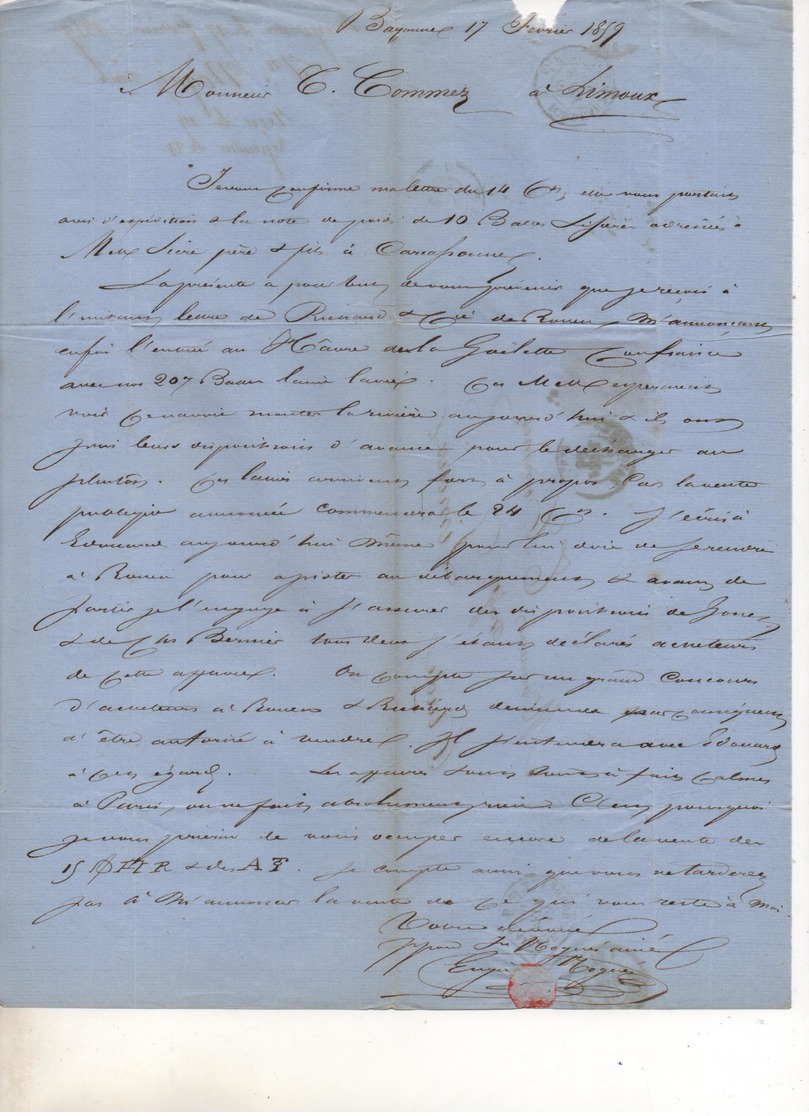 Bayonne 17 Février 1859
Monsieur T. Commez à Limoux
Je vous confirme ma lettre du 14 Ct, elle vous portait
avis d'expédition & la note de poids de 10 Balles adressés à
MM Sicre père & fils à Carcassonne.
La présente a pour but de vous prévenir que je reçois à
l'instant lettre de Richard & Cie de Rouen m'annonçant
enfin l'entrée au Hâvre de la Goëlette Confiance
avec nos 207 Balles laine lavée. Ces MM espéraient
voir ce navire monter la rivière aujourd'hui & ils ont
pris leurs dispositions d'avance pour le décharger au
plutôt. Ces laines arrivent fort à propos car la vente
publique annoncée commencera le 24 Ct. J'écris à
Edouard aujourd'hui même pour lui dire de se rendre
à Rouen pour assister au débarquement & avant de
partir je l'engage à s'assurer des dispositions de
& de Chs Bernier tous deux s'étant déclarés acheteurs
de cette affaire. On compte sur un grand concours
d'acheteurs à Rouen & Richard demande par conséquent
d'être autorisé à vendre. Il s'entendra avec Edouard
à cet égard. Les affaires sont tout à fait calmes
à Paris, on ne fait absolument rien. C'est pourquoi
je vous prierai de vous occuper encore de la vente des
15 HR & des AF. Je compte aussi que vous ne tarderez
pas à m'annoncer la vente de ce qui vous reste à moi.
Votre dévoué
ppon Jn Noguès ainé
Noguès